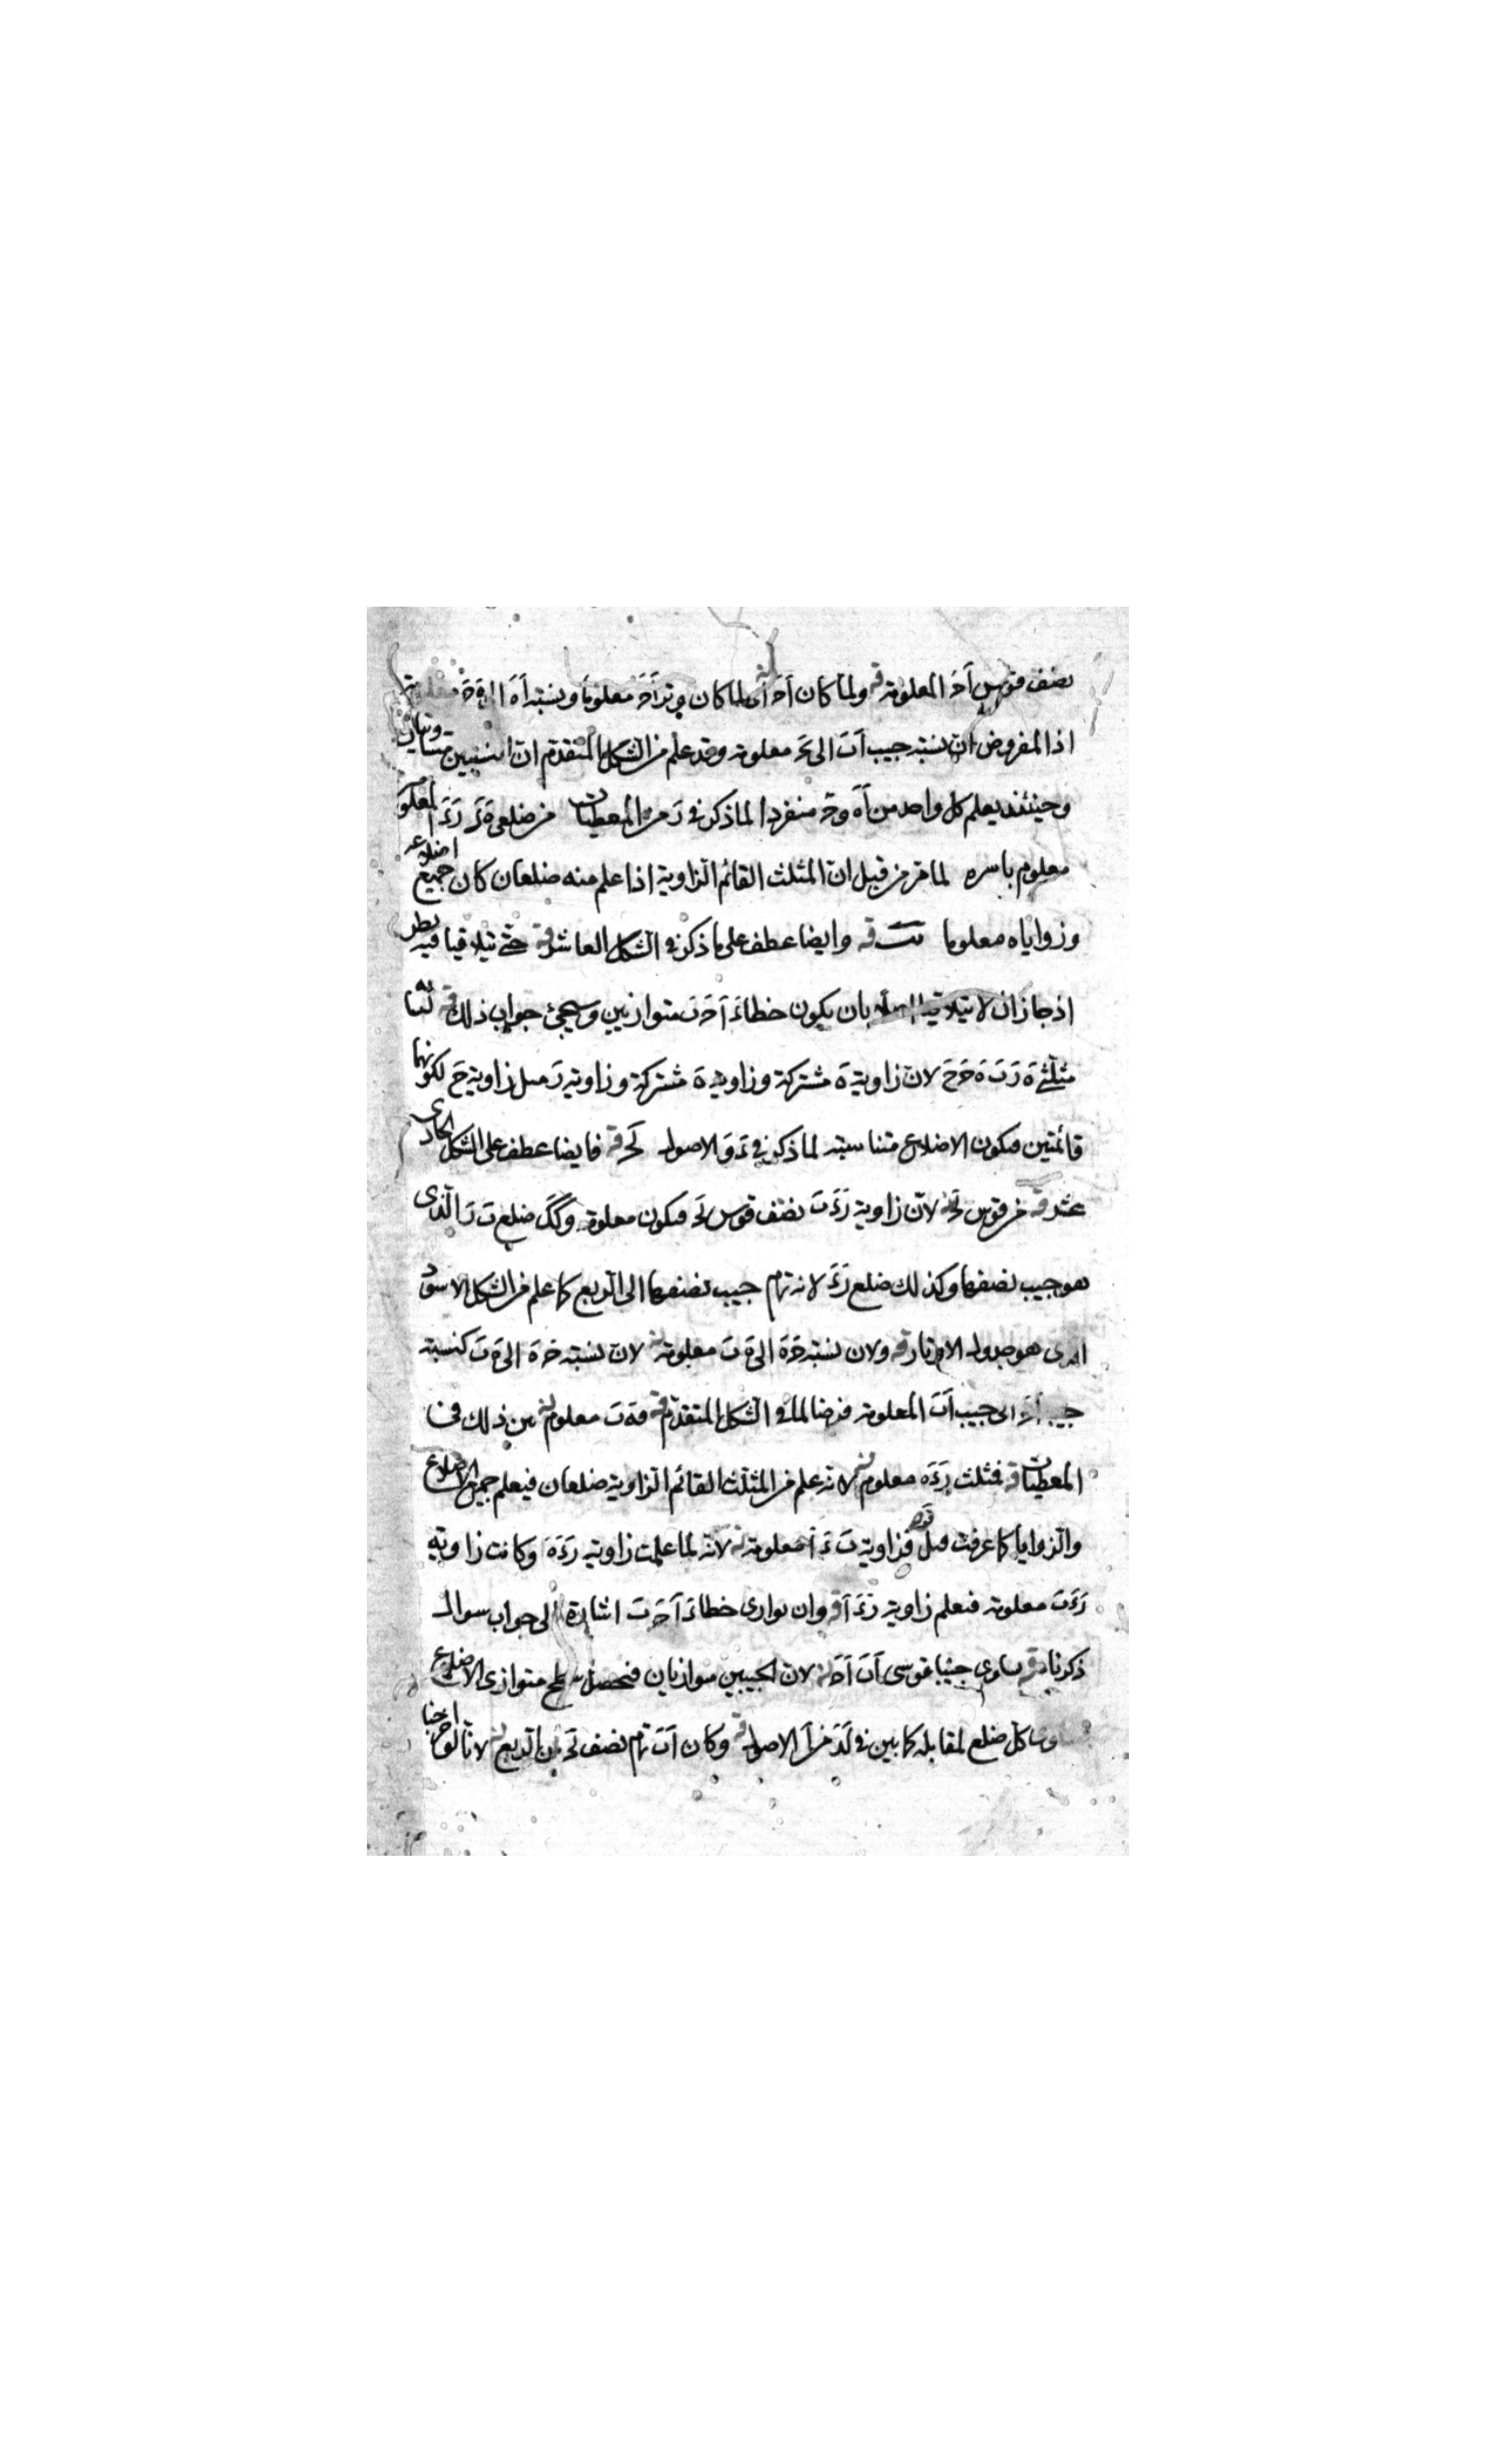 نصف قوس آحَ المعلومة قه ولما كان آحَ آى لما كان وترآحَ معلوما ونسبة آهَ الى هَ حَ معلومة
اذا المفروض ان نسبة جيب آبَ الى بَحَ معلومة وقد علم من الشكل المتقدم ان النسبتين متساويتان
وحينئذ يعلم كل واحد من آهَ وهَحَ منفردا لما ذكر فى زَ من المعطيات من ضلعى هَزَ زَءَ المعلو
معلوم باسره لما مر من قبل ان المثلث القائم الزاوية اذا علم منه ضلعان كان جميع اضلاعه
وزواياه معلوما قه وايضا عطف على ما ذكر فى الشكل العاشر قه حتى يتلاقيا فيه نظر
اذ جاز ان لا يتلاقيا بان يكون خطا ءَآ حَبَ متوازيين وسيجئ جواب ذلك قه لتشابه
مثلثى هَزَبَ هَحَحَ لان زاوية هَ مشتركة وزاوية هَ مشتركة وزاوية زَ مثل زاوية حَ لكونهما
قائمتين فيكون الاضلاع متناسبة لما ذكر فى ءَ وَ الاصول لَحَ قه فايضا عطف على الشكل الحادى
عشر قه من قوس بَحَ لان زاوية زَءَبَ نصف قوس بَحَ فيكون معلومة وكك ضلع بَ زَ الذى
هو جيب نصفها وكذلك ضلع زَءَ لانه تمام جيب نصفها الى الربع كما علم من الشكل الاسود
الذى هو جدول الاوتار قه ولان نسبة حَهَ الى هَ بَ معلومة لان نسبة حَ هَ الى هَ بَ كنسبة
جيب آحَ الى جيب آبَ المعلومة فرضا لما فى الشكل المتقدم قه فهَ بَ معلوم من ذلك فى ا
المعطيات قه فمثلث زءَه معلوم لانه علم من المثلث القائم الزاوية ضلعان فيعلم جميع الاضلاع
والزوايا كما عرفت قبل قه فزاوية بَ ءَ آ معلومة لانه لما علمت زاوية زءَهَ وكانت زاوية
زَءَبَ معلومة فنعلم زاوية زءَ آ قه وان توازى خطا ءَآ حَ بَ اشارة الى جواب سوال
ذكرناه قه تساوى جيبا قوسى آبَ آحَ لان الجيبين متوازيان فيحصل سطح متوازى الاضلاع
كل ضلع لمقابله كما بين فى لَدَ من آ الاصول قه وكان آبَ تمام نصف بَحَ من الربع لانا لو اخرجنا